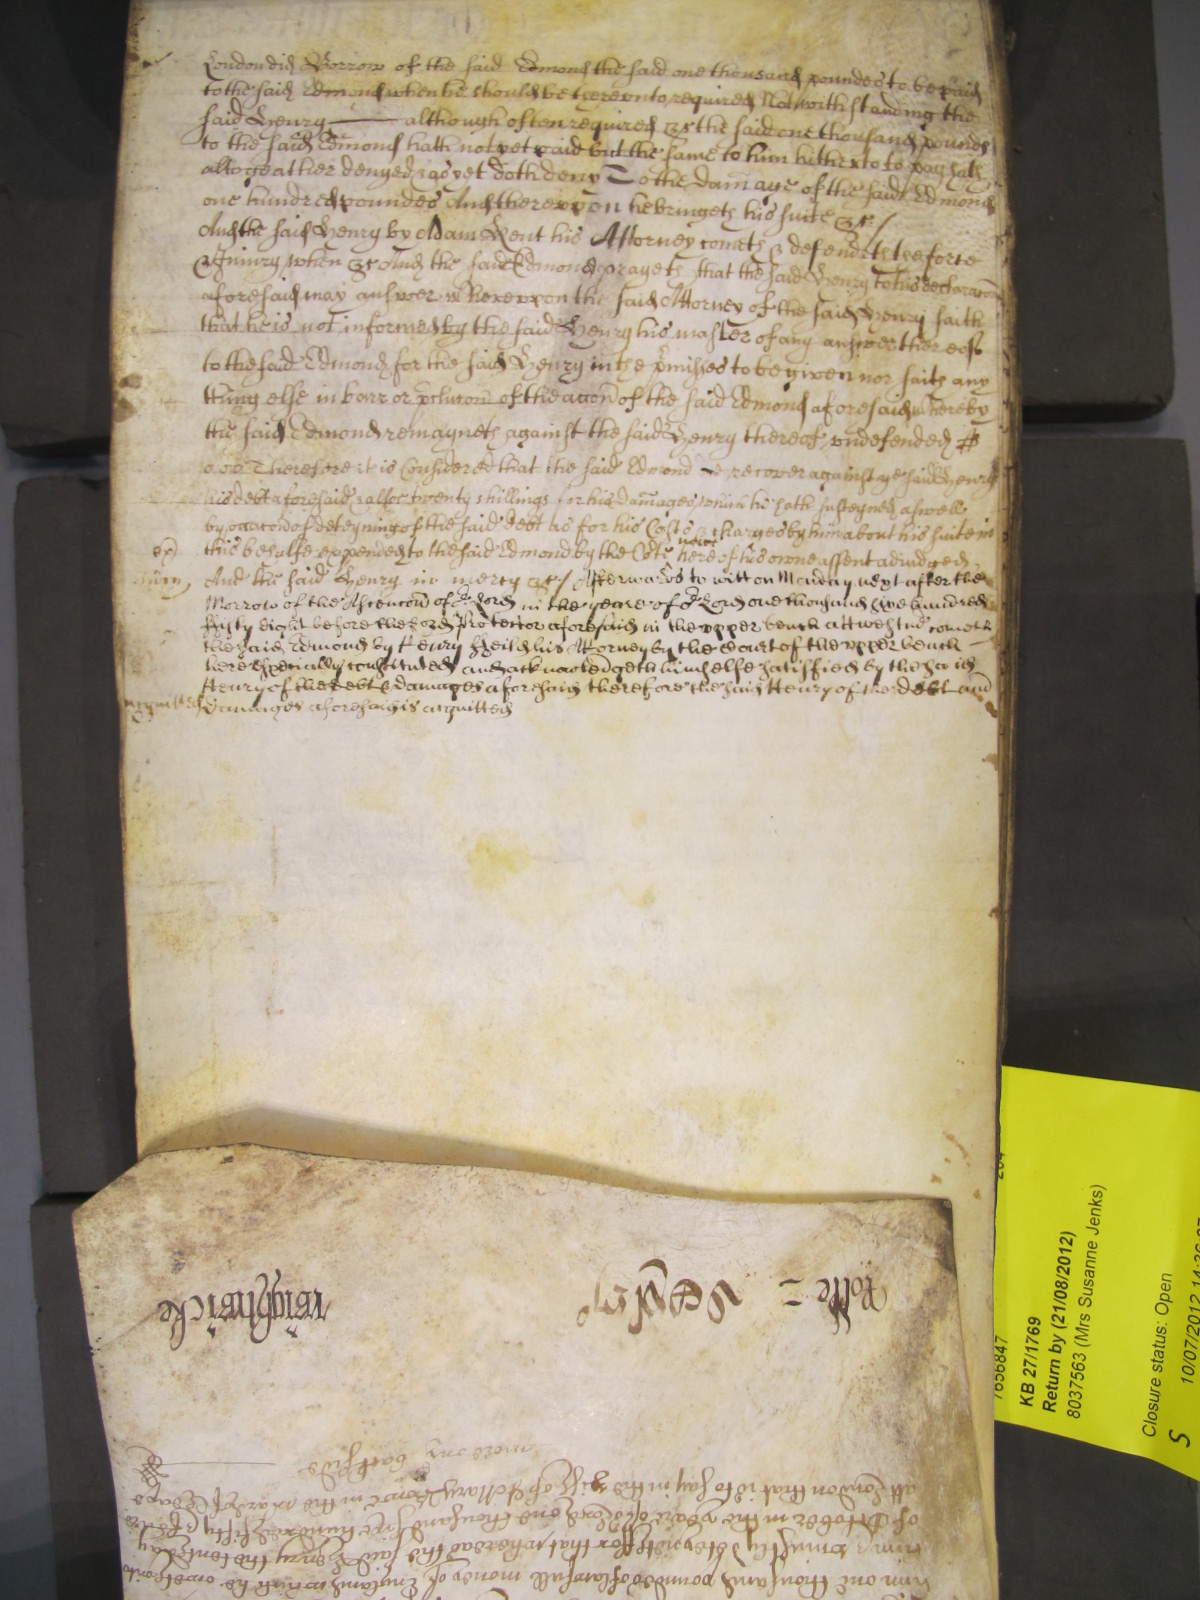 London did Borrow of the said Edmond the said one thousand poundes to be paid
to the said Edmond when he should be thereunto required Notwithstanding the
said Henry although often required &c the said one thousand pounds
to the said Edmond hath not yet paid but the same to him hitherto to pay hath
altogeather denyed & as yet doth deny To the damage of the said Edmond
one hundred poundes And thereupon he bringeth his suite &c /
And the said Henry by Adam Kent his Attorney cometh & defendeth the force
& Iniury when &c And the said Edmond prayeth that the said Henry to his declaracon
aforesaid may answer Whereupon the said Attorney of the said Henry saith
that he is not informed by the said Henry his master of any answer thereof
to the said Edmond for the said Henry in the pmisses to be given nor saith any
thing else in barr or pclucon of the accon of the said Edmond aforesaid whereby
the said Edmond remayneth against the said Henry thereof undefended
Therefore it is Considered that the said Edmond recover against ye said Henry
his debt aforesaid & alsoe twenty shillings for his damages which he hath susteyned aswell
by occacon of deteyning of the said debt as for his Costs & charges by him about his suite in
this behalfe expended to the said Edmond by the Cort here of his owne assent adiudged
And the said Henry in mercy &c / Afterwards to witt on Monday next after the
Morrow of the Ascencon of or Lord in the yeare of or Lord one thousand six hundred
fifty eight before the Lord Protector aforesaid in the upper bench att westmr cometh
the said Edmond by Henry his Attorney by the Court of the upper bench
here especially constituted and acknowledgeth himselfe satisfied by the said
Henry of the debt & damages aforesaid therefore the said Henry of the debt and
acquitted
damages aforesaid is acquitted
Rolle
Wightwicke
him one thousand poundes of lawfull money of England which he oweth unto
him & uniustly deteyneth for that whereas the said Henry the tenth day
of October in the yeare of or Lord one thousand six hundred fifty &
att London that is to say in the pish of St Mary Bowe in the ward of Cheape
7656847
KB 27/1769
Return by (21/08/2012)
8037563 (Mrs Susanne Jenks)
Closure status: Open
S